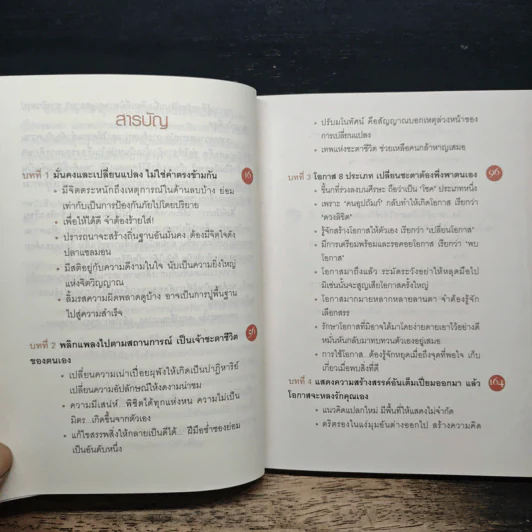 สารบัญ
บทที่ 1 มั่นคงและเปลี่ยนแปลง ไม่ใช่คำตรงข้ามกัน 16
• มีจิตตระหนักถึงเหตุการณ์ในด้านลบบ้าง ย่อม
เท่ากับเป็นการป้องกันภัยไปโดยปริยาย
• เพื่อให้ได้ดี จำต้องร้ายใส่!
• ปรารถนาจะสร้างถิ่นฐานอันมั่นคง ต้องมีจิตใจดัง
ปลาแซลมอน
• มีสติอยู่กับความดีงามในใจ นับเป็นความยิ่งใหญ่
แห่งจิตวิญญาณ
• ลิ้มรสความผิดพลาดดูบ้าง อาจเป็นการปูพื้นฐาน
ไปสู่ความสำเร็จ
บทที่ 2 พลิกแพลงไปตามสถานการณ์ เป็นเจ้าชะตาชีวิต 56
ของตนเอง
• เปลี่ยนความเน่าเปื่อยผุพังให้เกิดเป็นปาฏิหาริย์
เปลี่ยนความอัปลักษณ์ให้งดงามน่าชม
• ความมีเสน่ห์...พิชิตได้ทุกแห่งหน ความไม่เป็น
มิตร...เกิดขึ้นจากตัวเอง
• แก้ไขสรรพสิ่งให้กลายเป็นดีได้... ฝีมือซ่ำซองย่อม
เป็นอันดับหนึ่ง
• ปรับมโนทัศน์ คือสัญญาณบอกเหตุล่วงหน้าของ
การเปลี่ยนแปลง
• เทพแห่งชะตาชีวิต ช่วยเหลือคนกล้าหาญเสมอ
บทที่ 3 โอกาส 8 ประเภท เปลี่ยนชะตาต้องพึ่งพาตนเอง 96
• ขี้นกที่ร่วงลงบนศีรษะ ถือว่าเป็น "โชค" ประเภทหนึ่ง
• เพราะ "คนอุปถัมภ์" กลับทำให้เกิดโอกาส เรียกว่า
"ดวงลิขิต"
• รู้จักสร้างโอกาสให้ตัวเอง เรียกว่า "เปลี่ยนโอกาส"
• มีการเตรียมพร้อมและรอคอยโอกาส เรียกว่า "พบ
โอกาส"
• โอกาสมาถึงแล้ว ระมัดระวังอย่าให้หลุดมือไป
มิเช่นนั้นจะสูญเสียโอกาสครั้งใหญ่
• โอกาสมากมายหลากหลายลานตา จำต้องรู้จัก
เลือกสรร
• รักษาโอกาสที่มิอาจได้มาโดยง่ายดายเอาไว้อย่างดี
หมั่นหันกลับมาทบทวนตัวเองอยู่เสมอ
• การใช้โอกาส...ต้องรู้จักหยุดเมื่อถึงจุดที่พอใจ เก็บ
เกี่ยวเมื่อพบสิ่งที่ดี
บทที่ 4 แสดงความสร้างสรรค์อันเต็มเปี่ยมออกมา แล้ว 164
โอกาสจะหลงรักคุณเอง
• แนวคิดแปลกใหม่ มีพื้นที่ให้แสดงไม่จำกัด
• ตริตรองในแง่มุมอันต่างออกไป สร้างความคิด